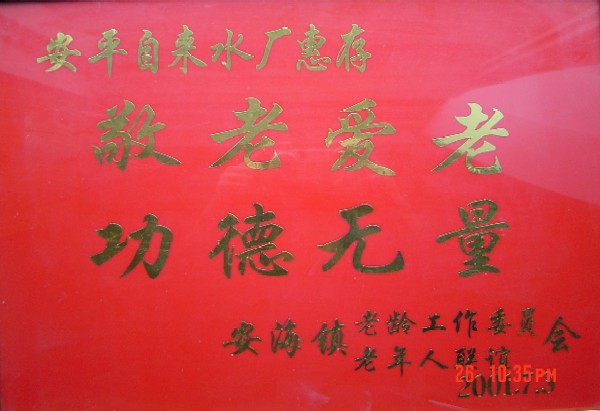 安平自来水厂惠存
敬老爱老
功德无量
安海镇老龄工作委员会
老年人联谊
26 10:35PM
2001.7.5